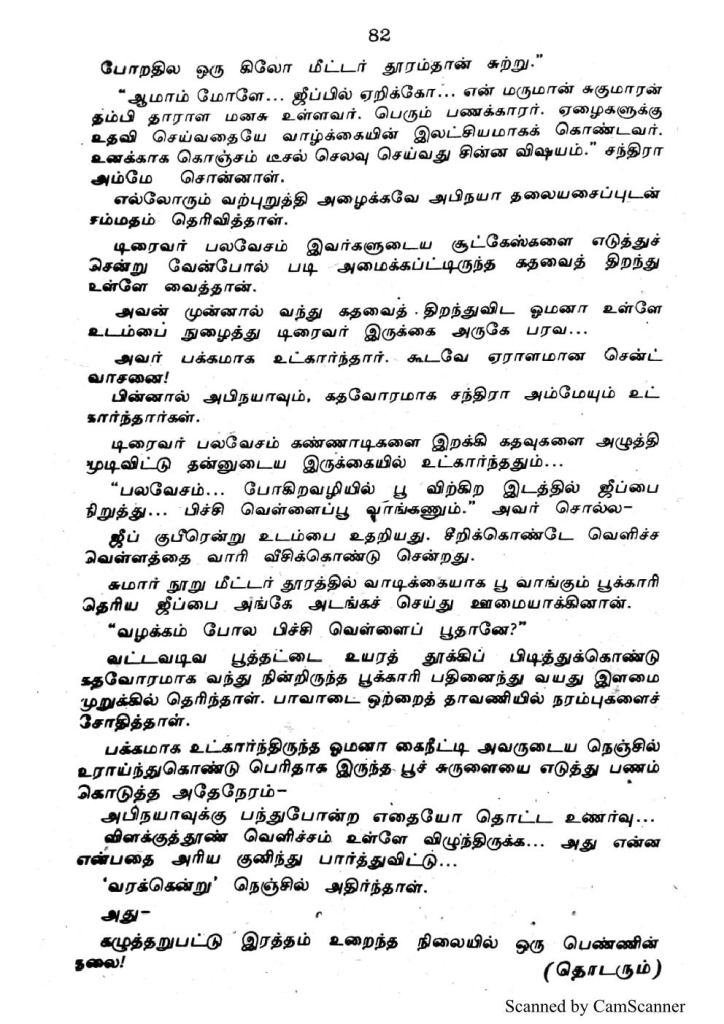 82
போறதில ஒரு கிலோ மீட்டர் தூரம்தான் சுற்று.”
“ஆமாம் மோளே... ஜீப்பில் ஏறிக்கோ... என் மருமான் சுகுமாரன்
தம்பி தாராள மனசு உள்ளவர். பெரும் பணக்காரர். ஏழைகளுக்கு
உதவி செய்வதையே வாழ்க்கையின் இலட்சியமாகக் கொண்டவர்.
உனக்காக கொஞ்சம் டீசல் செலவு செய்வது சின்ன விஷயம்.” சந்திரா
அம்மே சொன்னாள்.
எல்லோரும் வற்புறுத்தி அழைக்கவே அபிநயா தலையசைப்புடன்
சம்மதம் தெரிவித்தாள்.
டிரைவர் பலவேசம் இவர்களுடைய சூட்கேஸ்களை எடுத்துச்
சென்று வேன்போல் படி அமைக்கப்ட்டிருந்த கதவைத் திறந்து
உள்ளே வைத்தான்.
அவன் முன்னால் வந்து கதவைத் திறந்துவிட ஓமனா உள்ளே
உடம்பை நுழைத்து டிரைவர் இருக்கை அருகே பரவ...
அவர் பக்கமாக உட்கார்ந்தார். கூடவே ஏராளமான சென்ட்
வாசனை!
பின்னால் அபிநயாவும், கதவோரமாக சந்திரா அம்மேயும் உட்
கார்ந்தார்கள்.
டிரைவர் பலவேசம் கண்ணாடிகளை இறக்கி கதவுகளை அழுத்தி
மூடிவிட்டு தன்னுடைய இருக்கையில் உட்கார்ந்ததும்...
“பலவேசம்... போகிறவழியில் பூ விற்கிற இடத்தில் ஜீப்பை
நிறுத்து... பிச்சி வெள்ளைப்பூ வாங்கணும்.” அவர் சொல்ல-
ஜீப் குபீரென்று உடம்பை உதறியது. சீறிக்கொண்டே வெளிச்ச
வெள்ளத்தை வாரி வீசிக்கொண்டு சென்றது.
சுமார் நூறு மீட்டர் தூரத்தில் வாடிக்கையாக பூ வாங்கும் பூக்காரி
தெரிய ஜீப்பை அங்கே அடங்கச் செய்து ஊமையாக்கினான்.
“வழக்கம் போல பிச்சி வெள்ளைப் பூதானே?”
வட்டவடிவ பூத்தட்டை உயரத் தூக்கிப் பிடித்துக்கொண்டு
கதவோரமாக வந்து நின்றிருந்த பூக்காரி பதினைந்து வயது இளமை
முறுக்கில் தெரிந்தாள். பாவாடை ஒற்றைத் தாவணியில் நரம்புகளைச்
சோதித்தாள்.
பக்கமாக உட்கார்ந்திருந்த ஓமனா கைநீட்டி அவருடைய நெஞ்சில்
உராய்ந்துகொண்டு பெரிதாக இருந்த பூச் சுருளையை எடுத்து பணம்
கொடுத்த அதேநேரம்-
அபிநயாவுக்கு பந்துபோன்ற எதையோ தொட்ட உணர்வு...
விளக்குத்தூண் வெளிச்சம் உள்ளே விழுந்திருக்க... அது என்ன
என்பதை அரிய குனிந்து பார்த்துவிட்டு...
‘வரக்கென்று’ நெஞ்சில் அதிர்ந்தாள்.
அது-
கழுத்தறுபட்டு இரத்தம் உறைந்த நிலையில் ஒரு பெண்ணின்
தலை!
(தொடரும்)
Scanned by CamScanner